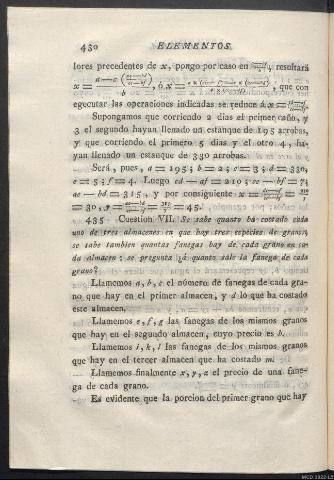 430 ELEMENTOS.
lores precedentes de x, pongo por caso en resultará
x = a — c b , ó x = , que con
egecutar las operaciones indicadas se reduce á x =
Supongamos que corriendo 2 dias el primer caño, y
3 el segundo hayan llenado un estanque de 195 arrobas,
y que corriendo el primero 5 dias y el otro 4, ha-
yan llenado un estanque de 330 arrobas.
Será, pues, a = 195; b = 2; c = 3; d = 330,
e = 5; f = 4. Luego cd — af = 210; ce — bf = 7;
ae — bd = 315, y por consiguiente x =
= 30, y = = 45.
435 Cuestion VII. Se sabe quanto ha costado cada
uno de tres almacenes en que hay tres especies de grano;
se sabe tambien quantas fanegas hay de cada grano en ca-
da almacen; se pregunta ¿á quanto sale la fanega de cada
grano?
Llamemos a, b, c el número de fanegas de cada gra-
no que hay en el primer almacen, y d lo que ha costado
este almacen.
Llamemos e, f, g las fanegas de los mismos granos
que hay en el segundo almacen, cuyo precio es h.
Llamemos i, k, l las fanegas de los mismos granos
que hay en el tercer almacen que ha costado m.
Llamemos finalmente x, y, z el precio de una fane-
ga de cada grano.
Es evidente que la porcion del primer grano que hay